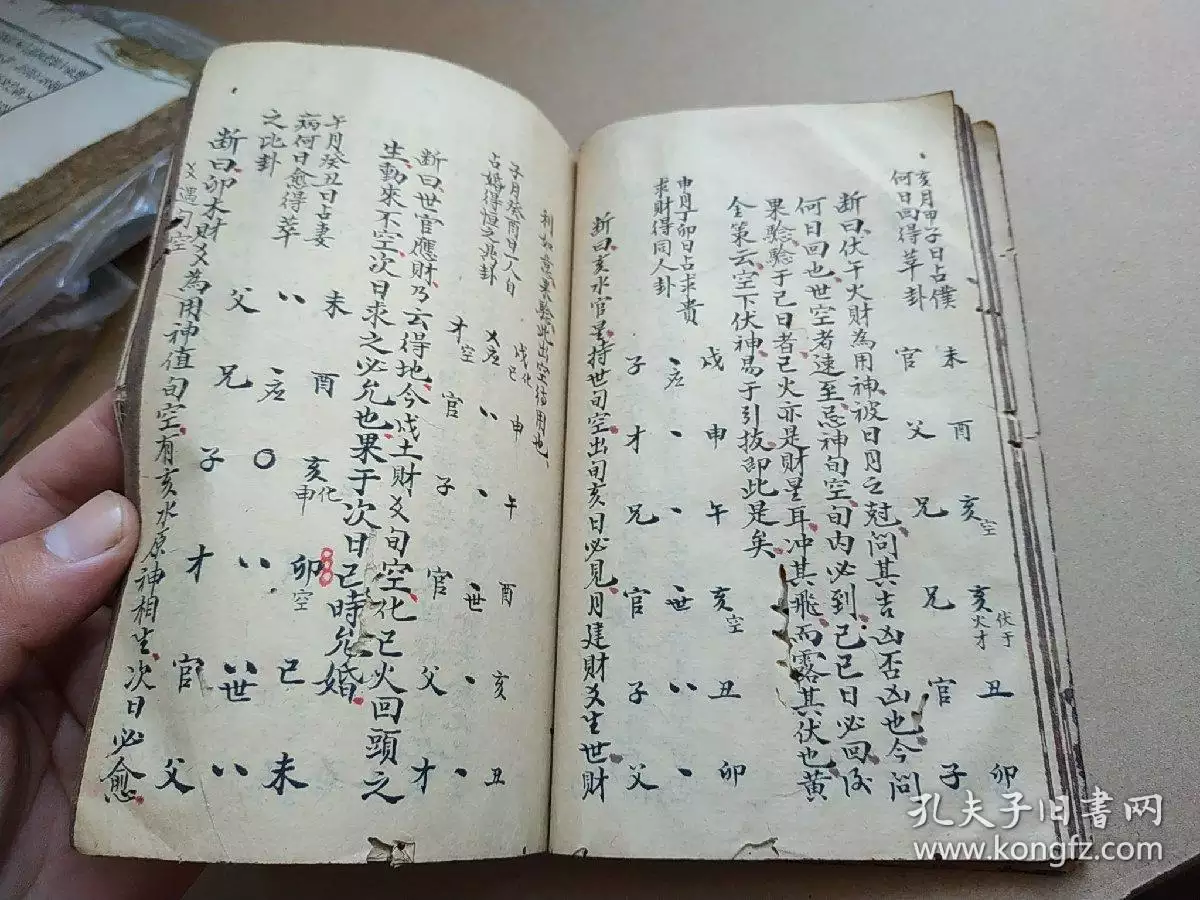 亥月甲子日占僕
何日回得革卦
未 酉 亥空 亥 丑 卯
伏于火才
官 父 兄 兄 官 子
断曰伏午火財為用神被日月之尅问其吉凶否凶也今問
何日回也世空者速至忌神旬空旬内必到己巳日必回後
果驗驗于己日者巳火亦是財星耳冲其飛而露其伏也黄
金策云空下伏神易于引拔即此是矣
申月丁卯日占求貴
求財得同人卦
戌 申 午 亥空 丑 卯
應 世
子 才 兄 官 子 父
断曰亥水官星持世旬空出旬亥日必見月建財爻生世財
利如意果驗此出空值用也
子月癸酉日一人自
占婚得恒之兆卦
戌化巳 申 午 酉 亥 丑
應 世
才空 官 子 官 父 才
断曰世官應財乃云得地今戌土財爻旬空化巳火回頭之
生動來不空次日求之必允也果于次日巳時允婚
午月癸丑日占妻
病何日愈得萃
之比卦
未 酉 亥化申 卯空 巳 未
應 世
父 兄 子 才 官 父
断曰卯木財爻為用神值旬空有亥水原神相生次日必愈
爻遇旬空
孔夫子旧书网
www.kongfz.com